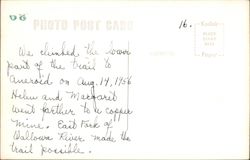 96
PHOTO POST CARD
16.
Kodak
PLACE
STAMP
HERE
Paper
We climbed the lower
part of the trail to
Aneroid on Aug. 14, 1956
Helen and Margaret
went farther to a copper
mine. East Fork of
Wallowa River made the
trail possible.